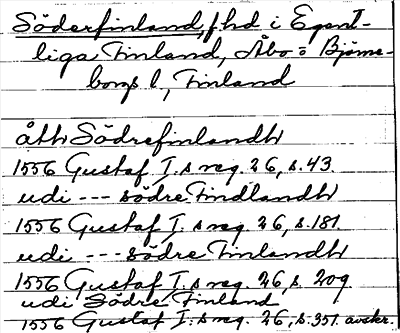 Söderfinland, f hd i Egent-
liga Finland, Åbo o Björne-
borgs l, Finland
åth Södrefinlandh
1556 Gustaf I:s reg. 26, s. 43.
udi --- södre Findlandh
1556 Gustaf I:s reg 26, s. 181.
udi --- södre Finlandh
1556 Gustaf I:s reg. 26, s. 209
udi Södre Finland
1556 Gustaf I:s reg. 26, s. 351. avskr.